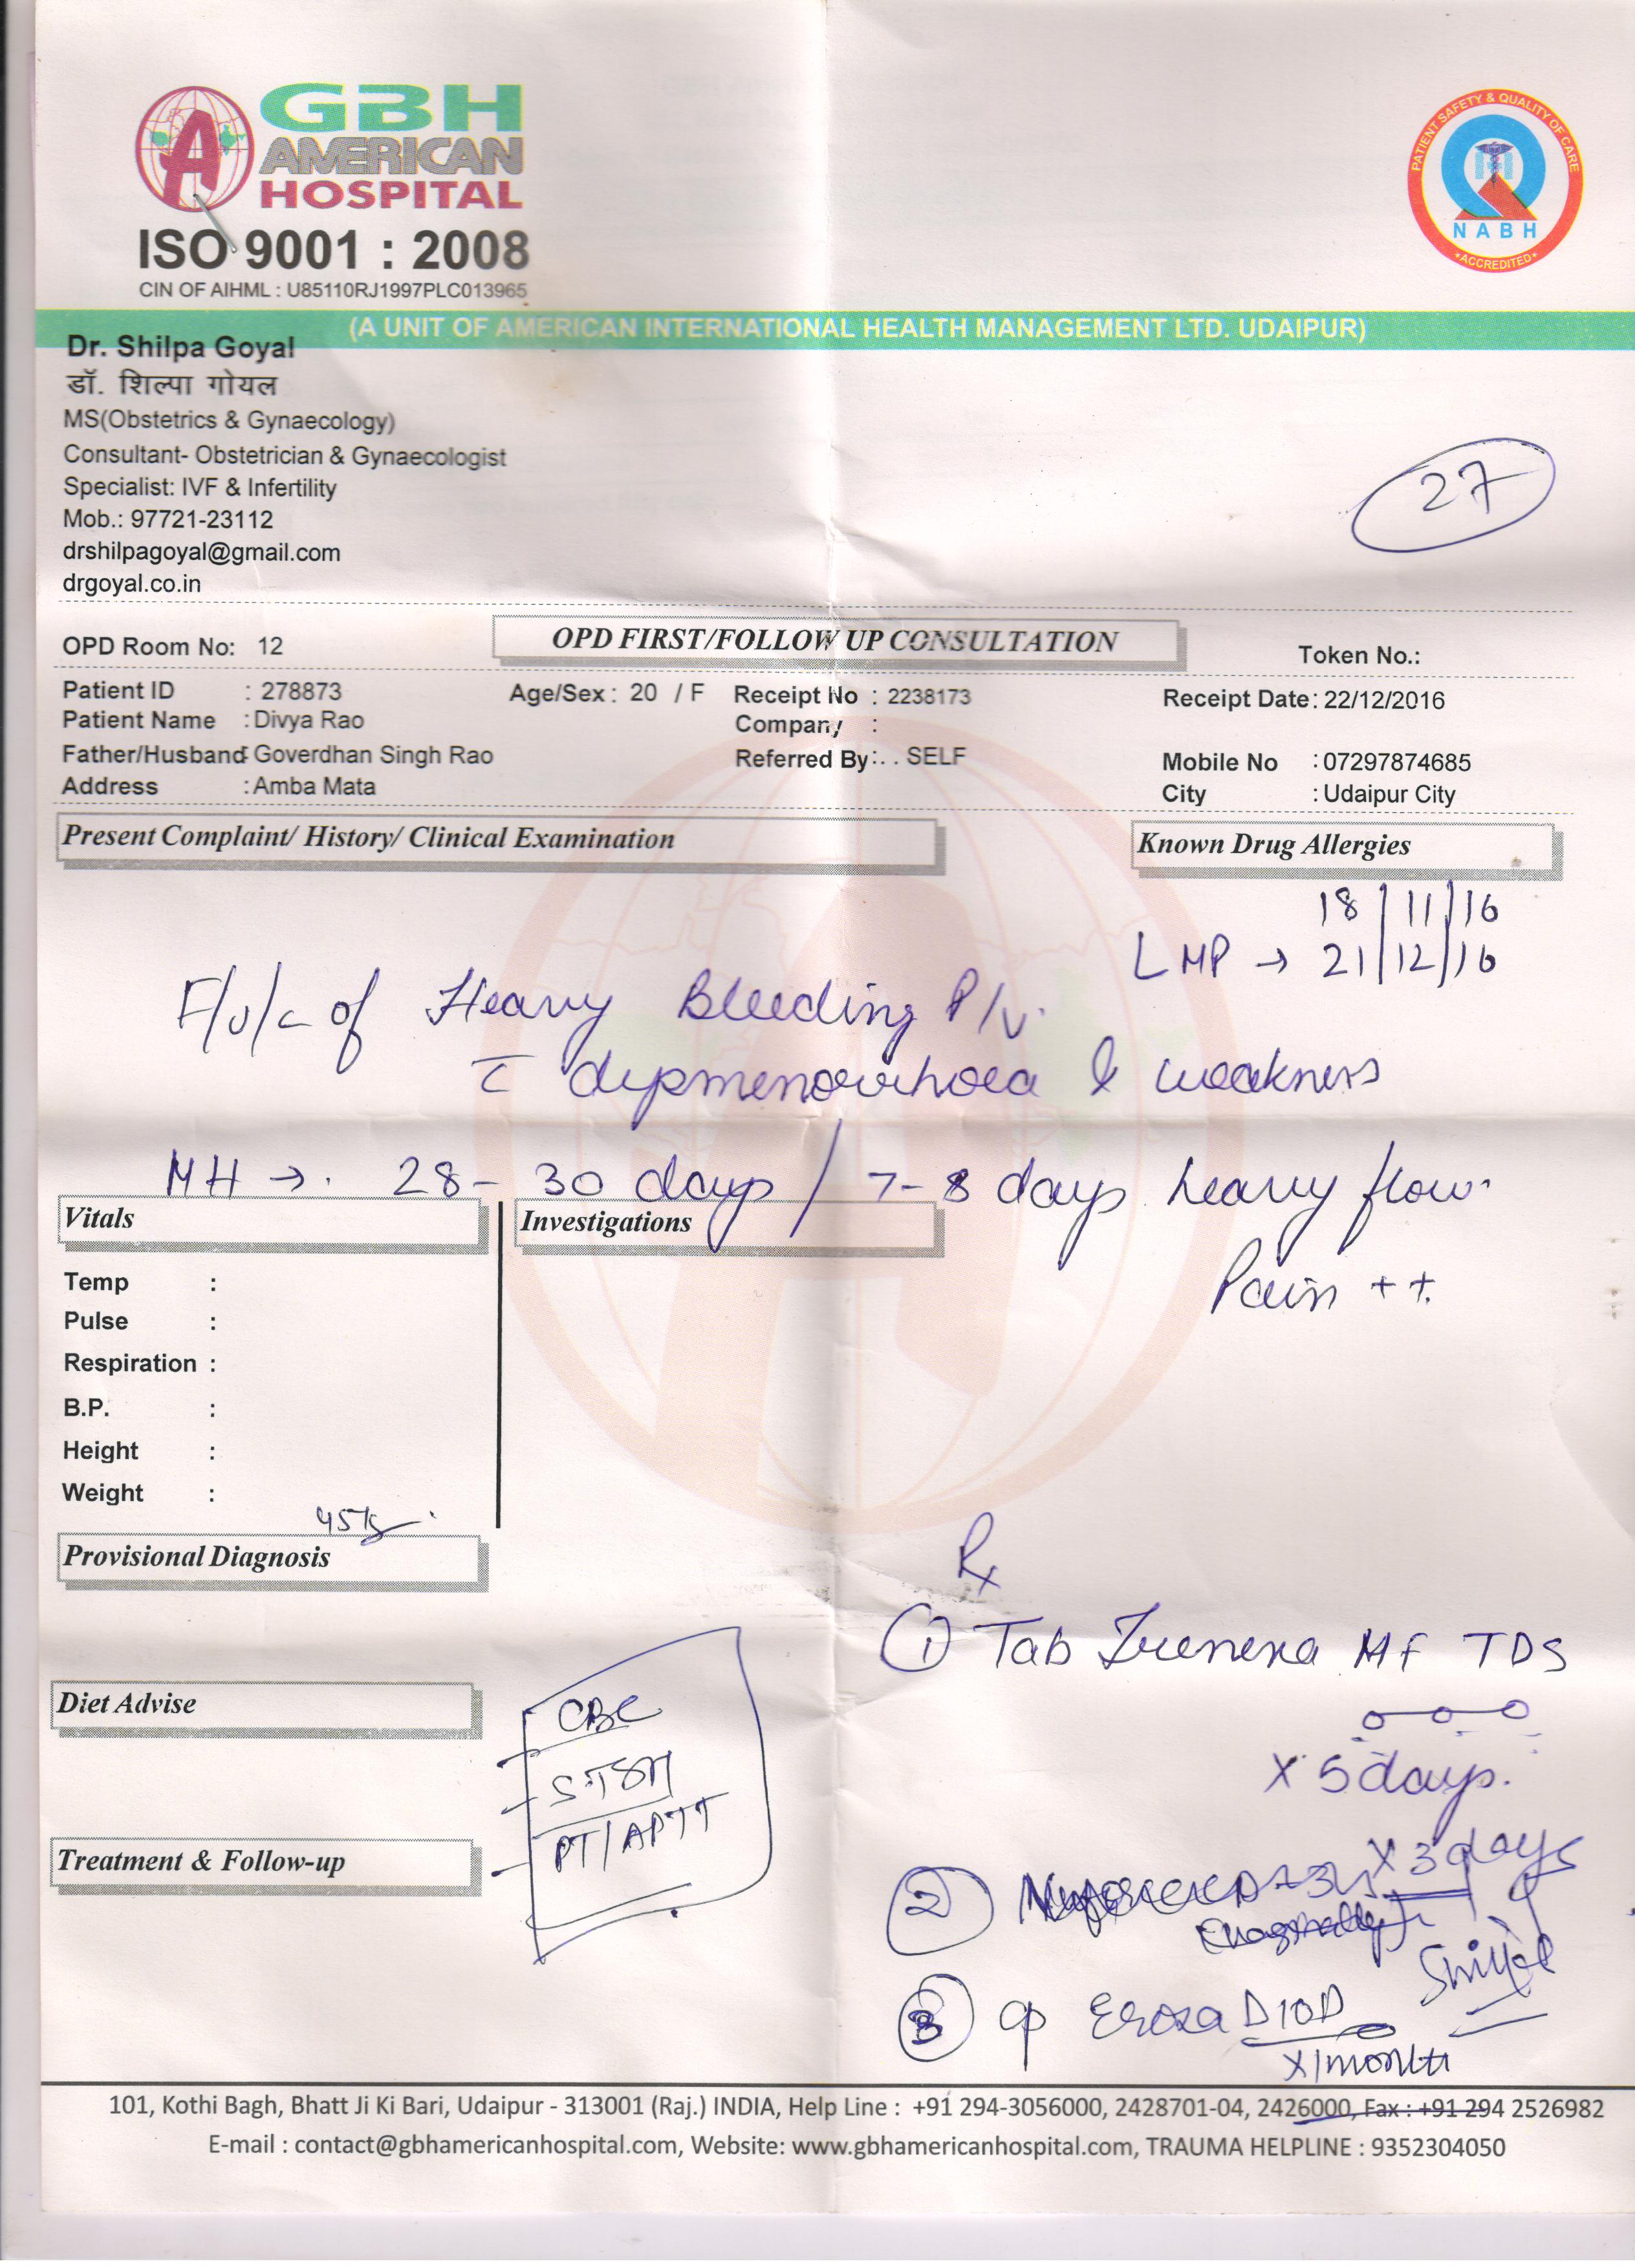 GBH
AMERICAN
HOSPITAL
ISO 9001 : 2008
CIN OF AIHML : U85110RJ1997PLC013965
PATIENT SAFETY & QUALITY OF CARE
NABH
ACCREDITED
(A UNIT OF AMERICAN INTERNATIONAL HEALTH MANAGEMENT LTD. UDAIPUR)
Dr. Shilpa Goyal
डॉ. शिल्पा गोयल
MS(Obstetrics & Gynaecology)
Consultant- Obstetrician & Gynaecologist
Specialist: IVF & Infertility
Mob.: 97721-23112
drshilpagoyal@gmail.com
drgoyal.co.in
27
OPD Room No: 12 OPD FIRST/FOLLOW UP CONSULTATION Token No.:
Patient ID : 278873 Age/Sex : 20 / F Receipt No : 2238173 Receipt Date : 22/12/2016
Patient Name : Divya Rao Company :
Father/Husband : Goverdhan Singh Rao Referred By : . . SELF Mobile No : 07297874685
Address : Amba Mata City : Udaipur City
Present Complaint/ History/ Clinical Examination Known Drug Allergies
18/11/16
LMP → 21/12/16
of Heavy Bleeding P/V.
c̄ dysmenorrhoea & weakness
MH → . 28 - 30 days / 7-8 days heavy flow.
Vitals Investigations
Pain ++
Temp :
Pulse :
Respiration :
B.P. :
Height :
Weight :
45kg
Provisional Diagnosis
Rx
① Tab MF TDS
x 5 days.
Diet Advise
CBC
PT/APTT
Treatment & Follow-up
② x 3 days
③ cp D 10D
x 1 month
101, Kothi Bagh, Bhatt Ji Ki Bari, Udaipur - 313001 (Raj.) INDIA, Help Line : +91 294-3056000, 2428701-04, 2426000, Fax : +91 294 2526982
E-mail : contact@gbhamericanhospital.com, Website: www.gbhamericanhospital.com, TRAUMA HELPLINE : 9352304050